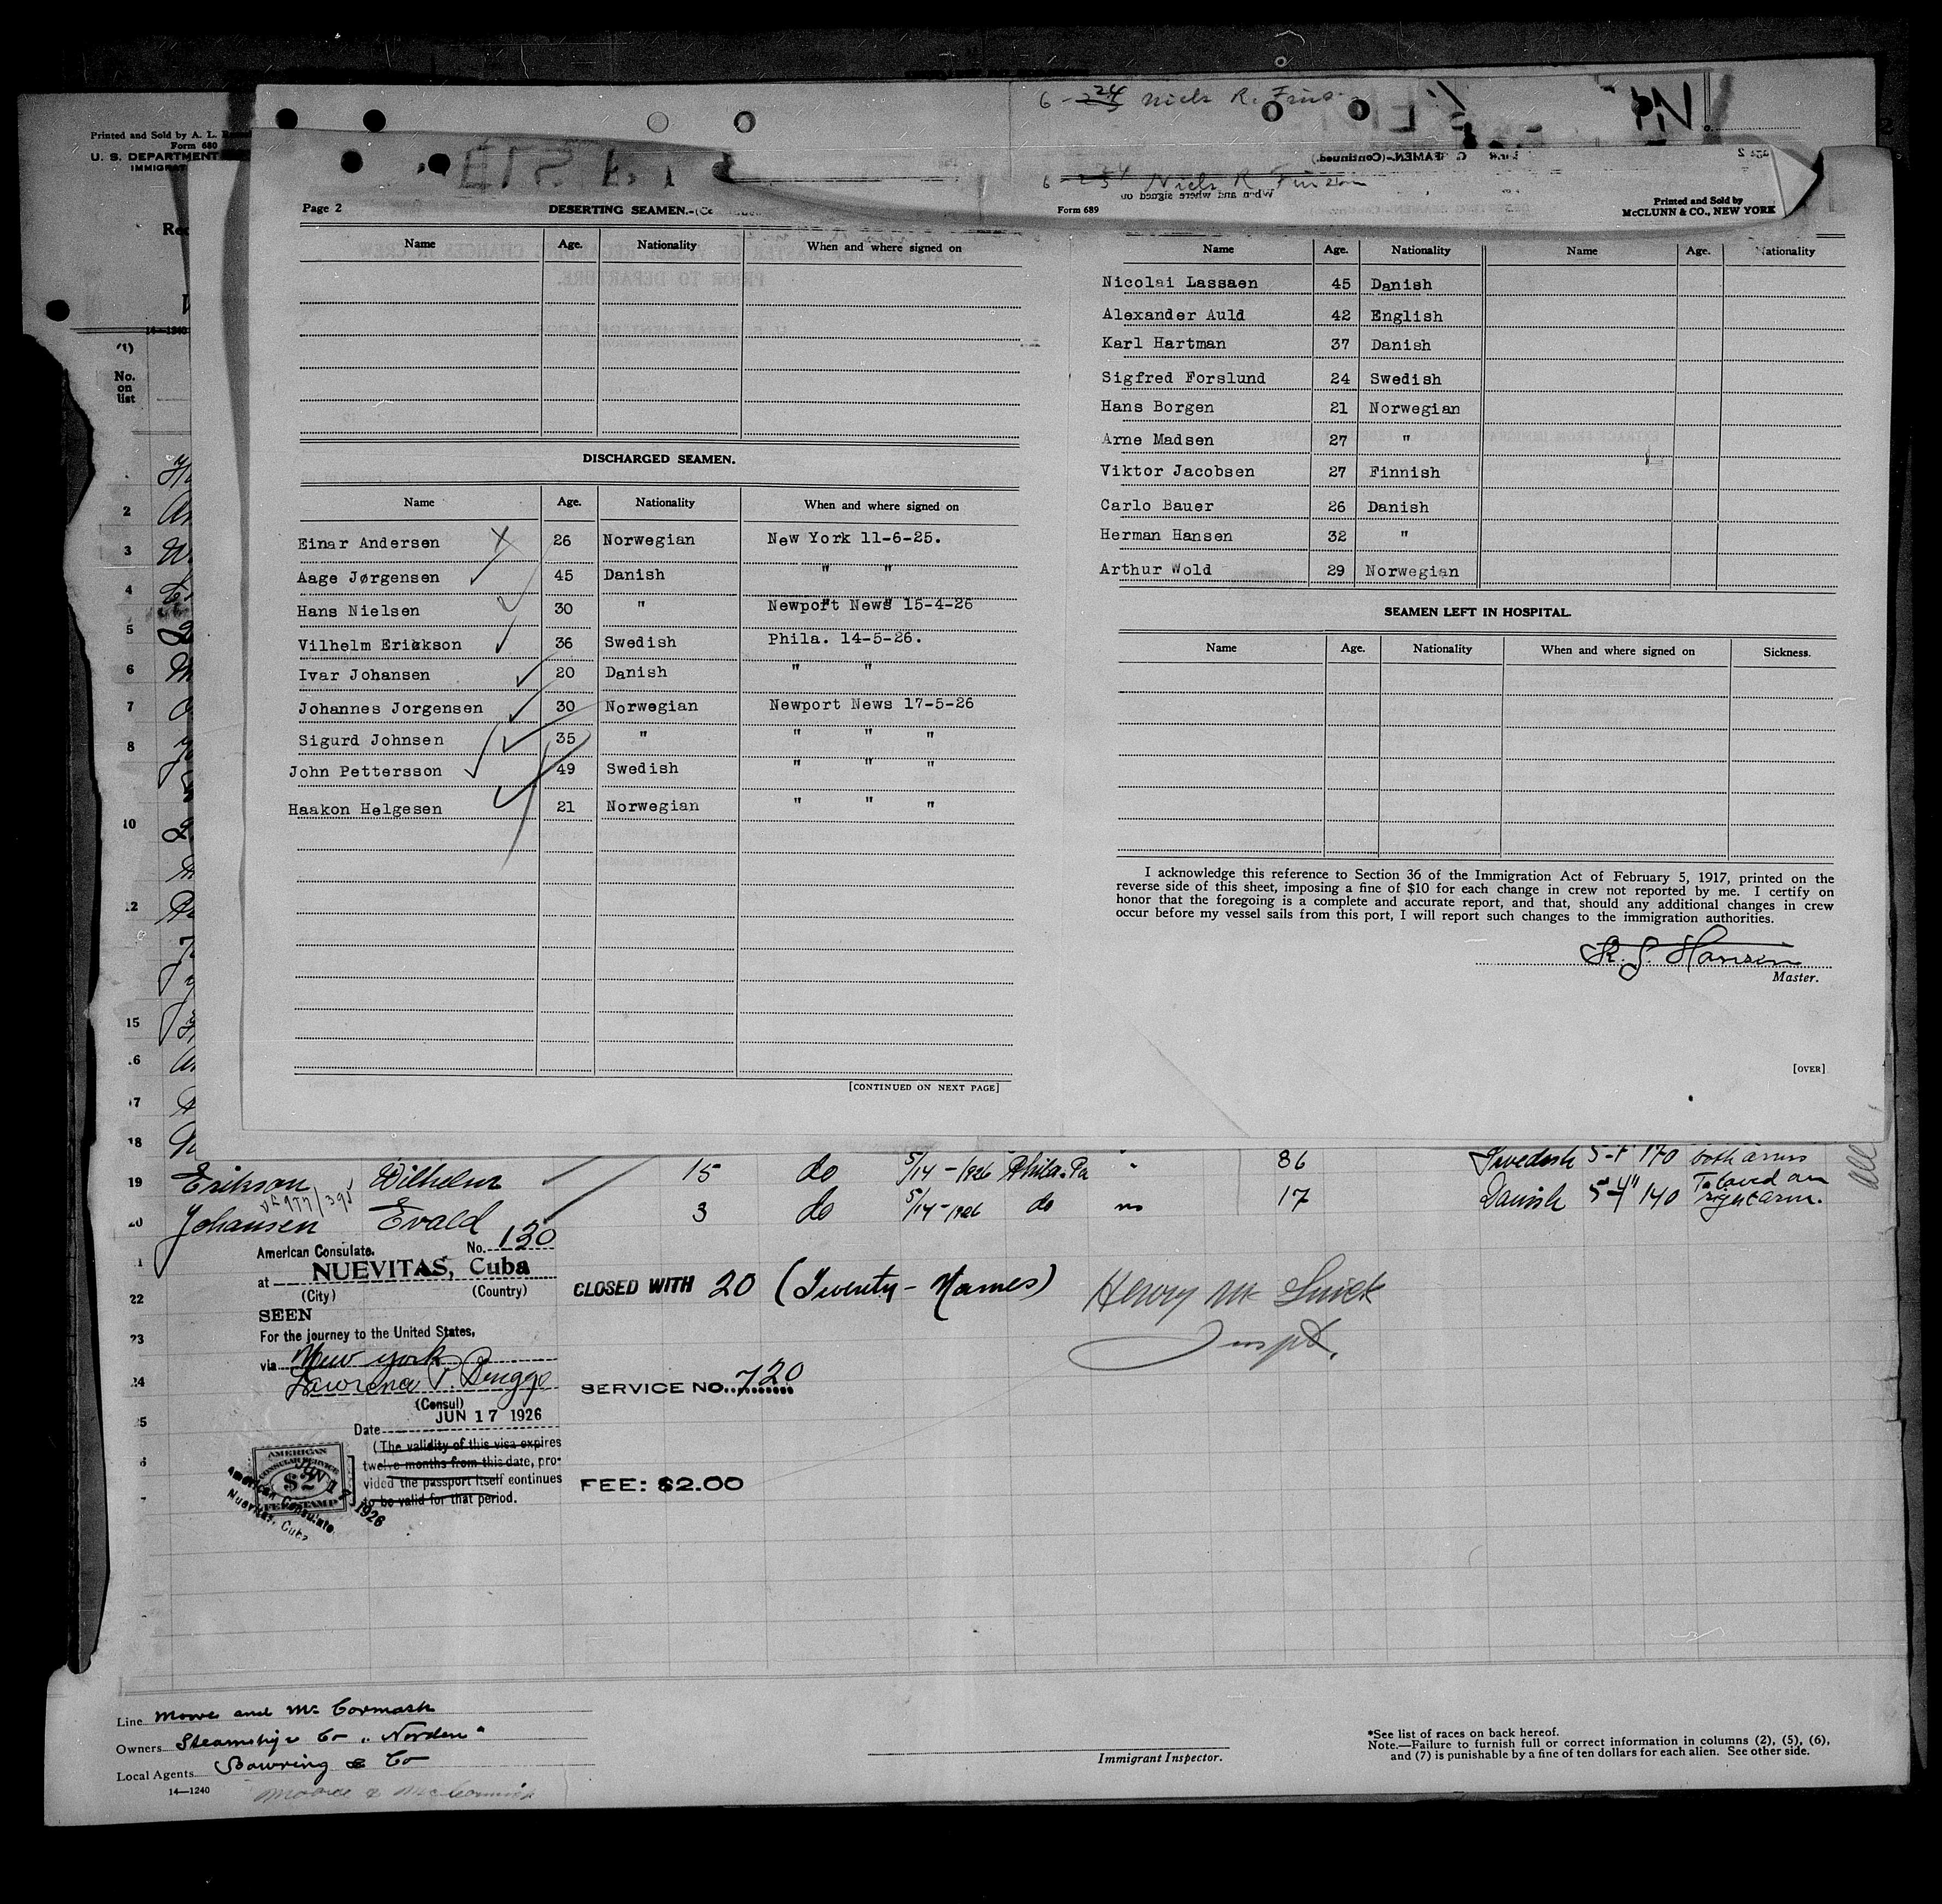 6-24 Niels R.
Printed and Sold by A. L.
Form 680
U. S. DEPARTMENT
IMMIGRAT
Rec
14-1240
(1)
No.
on
list
2
3
4
5
6
7
8
10
12
15
16
17
18
6-234 Niels R.
When and where signed on
Page 2
DESERTING SEAMEN.-(Co
Form 689
Printed and Sold by
McCLUNN & CO., NEW YORK
Name Age. Nationality When and where signed on
DISCHARGED SEAMEN.
Name Age. Nationality When and where signed on
Einar Andersen X 26 Norwegian New York 11-6-25.
Aage Jørgensen ✓ 45 Danish " "
Hans Nielsen ✓ 30 " Newport News 15-4-26
Vilhelm Erickson ✓ 36 Swedish Phila. 14-5-26.
Ivar Johansen ✓ 20 Danish " "
Johannes Jorgensen ✓ 30 Norwegian Newport News 17-5-26
Sigurd Johnsen ✓ 35 " " " "
John Pettersson ✓ 49 Swedish " " "
Haakon Helgesen ✓ 21 Norwegian " " "
[CONTINUED ON NEXT PAGE]
Name Age. Nationality Name Age. Nationality
Nicolai Lassaen 45 Danish
Alexander Auld 42 English
Karl Hartman 37 Danish
Sigfred Forslund 24 Swedish
Hans Borgen 21 Norwegian
Arne Madsen 27 "
Viktor Jacobsen 27 Finnish
Carlo Bauer 26 Danish
Herman Hansen 32 "
Arthur Wold 29 Norwegian
SEAMEN LEFT IN HOSPITAL.
Name Age. Nationality When and where signed on Sickness.
I acknowledge this reference to Section 36 of the Immigration Act of February 5, 1917, printed on the
reverse side of this sheet, imposing a fine of $10 for each change in crew not reported by me. I certify on
honor that the foregoing is a complete and accurate report, and that, should any additional changes in crew
occur before my vessel sails from this port, I will report such changes to the immigration authorities.
Hansen
Master.
[OVER]
19 Erikson Wilhelm 15 do 5/14-1926 Phila. Pa " 36 Swedish 5-7 170 both arms
20 Johansen Evald 3 do 5/14-1926 do no 17 Danish 5-4" 140 Tatooed on right arm.
American Consulate. No. 130
at NUEVITAS, Cuba
(City) (Country)
SEEN
For the journey to the United States,
via New York
Lawrence P. Briggs
(Consul)
Date JUN 17 1926
(The validity of this visa expires
twelve months from this date, pro-
vided the passport itself continues
to be valid for that period.
AMERICAN
CONSULAR SERVICE
$2
FEE STAMP
American Consulate
Nuevitas, Cuba
JUN 17 1926
CLOSED WITH 20 (Twenty-Names)
Henry Mc
Inspt.
SERVICE NO. 720
FEE: $2.00
22
23
24
25
Line Moore and Mc Cormack
Owners Steamship Co "Norden"
Local Agents Bowring & Co
Moore & McCormick
14—1240
Immigrant Inspector.
*See list of races on back hereof.
Note.—Failure to furnish full or correct information in columns (2), (5), (6),
and (7) is punishable by a fine of ten dollars for each alien. See other side.